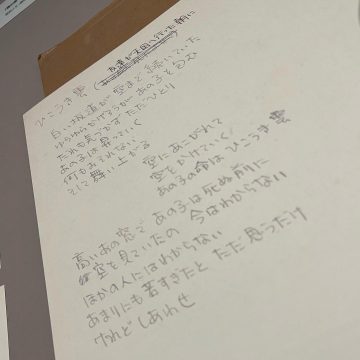 ひこうき雲
友達が天国へ行った朝に
白い坂道が空まで続いていた
ゆらゆらかげろうがあの子を包む
だれも気づかずただひとり
あの子は昇っていく
何もおそれない
そして舞い上がる
空にあこがれて
空をかけていく
あの子の命はひこうき雲
高いあの窓であの子は死ぬ前に
空を見ていたの 今はわからない
ほかの人にはわからない
あまりにも若すぎたと ただ思うだけ
けれどしあわせ